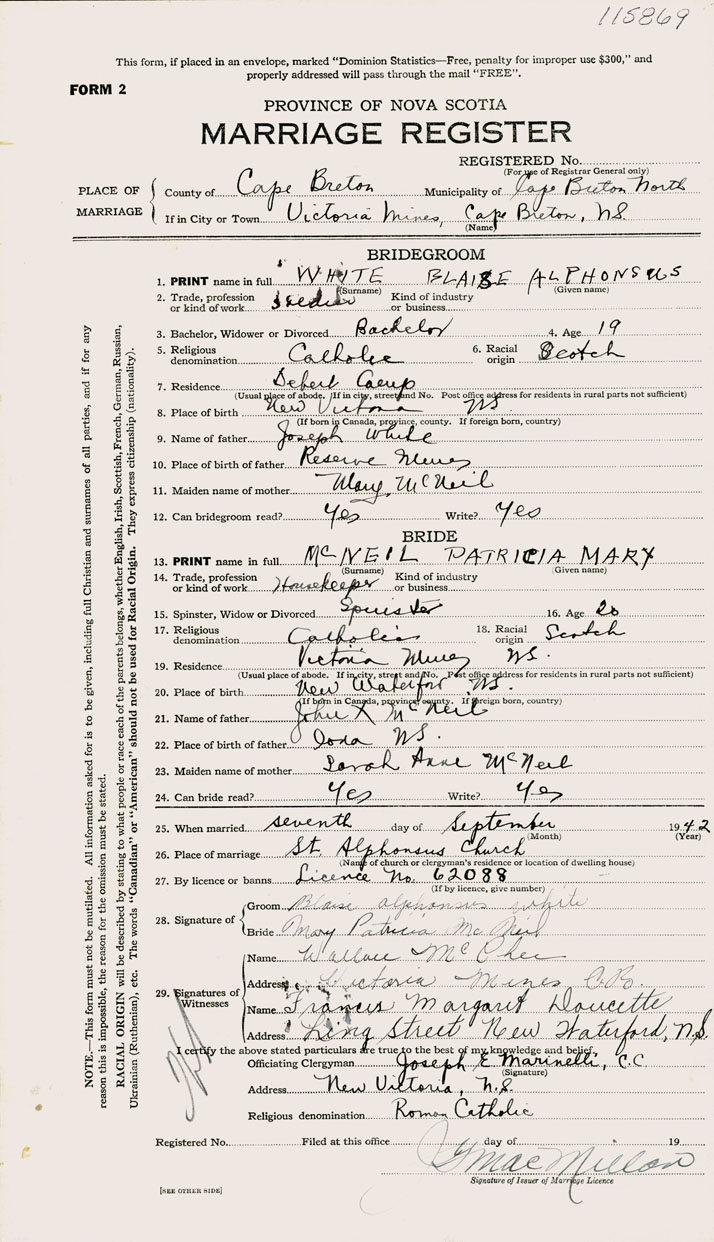 115869
This form, if placed in an envelope, marked "Dominion Statistics—Free, penalty for improper use $300," and
properly addressed will pass through the mail "FREE".
FORM 2
PROVINCE OF NOVA SCOTIA
MARRIAGE REGISTER
REGISTERED No.
(For use of Registrar General only)
PLACE OF MARRIAGE
County of Cape Breton Municipality of Cape Breton North
If in City or Town Victoria Mines, Cape Breton, N.S.
(Name)
BRIDEGROOM
1. PRINT name in full WHITE BLAISE ALPHONSUS
(Surname) (Given name)
2. Trade, profession or kind of work Soldier Kind of industry or business
3. Bachelor, Widower or Divorced Bachelor 4. Age 19
5. Religious denomination Catholic 6. Racial origin Scotch
7. Residence Debert Camp
(Usual place of abode. If in city, street and No. Post office address for residents in rural parts not sufficient)
8. Place of birth New Victoria NS
(If born in Canada, province, county. If foreign born, country)
9. Name of father Joseph White
10. Place of birth of father Reserve Mines
11. Maiden name of mother Mary McNeil
12. Can bridegroom read? Yes Write? Yes
BRIDE
13. PRINT name in full McNEIL PATRICIA MARY
(Surname) (Given name)
14. Trade, profession or kind of work Housekeeper Kind of industry or business
15. Spinster, Widow or Divorced Spinster 16. Age 20
17. Religious denomination Catholic 18. Racial origin Scotch
19. Residence Victoria Mines NS.
(Usual place of abode. If in city, street and No. Post office address for residents in rural parts not sufficient)
20. Place of birth New Waterford NS.
(If born in Canada, province, county. If foreign born, country)
21. Name of father John X McNeil
22. Place of birth of father Iona NS.
23. Maiden name of mother Sarah Anne McNeil
24. Can bride read? Yes Write? Yes
25. When married seventh day of September 1942
(Month) (Year)
26. Place of marriage St. Alphonsus Church
(Name of church or clergyman's residence or location of dwelling house)
27. By licence or banns Licence No. 62088
(If by licence, give number)
28. Signature of
Groom Blaise alphonsus white
Bride Mary Patricia McNeil
29. Signatures of Witnesses
Name Wallace McPhee
Address Victoria Mines C.B.
Name Francis Margaret Doucette
Address Ling Street New Waterford, N.S.
I certify the above stated particulars are true to the best of my knowledge and belief.
Officiating Clergyman Joseph E Marinelli, C.C.
(Signature)
Address New Victoria, N.S.
Religious denomination Roman Catholic
Registered No. Filed at this office day of 19
MacMillan
Signature of Issuer of Marriage Licence
[SEE OTHER SIDE]
NOTE.—This form must not be mutilated. All information asked for is to be given, including full Christian and surnames of all parties, and if for any
reason this is impossible, the reason for the omission must be stated.
RACIAL ORIGIN will be described by stating to what people or race each of the parents belongs, whether English, Irish, Scottish, French, German, Russian,
Ukrainian (Ruthenian), etc. The words "Canadian" or "American" should not be used for Racial Origin. They express citizenship (nationality).